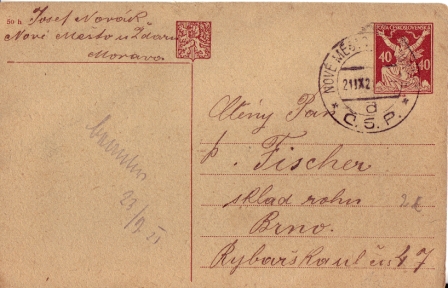 50 h
Josef Novák
Nové Mesto u Ždáru
Morava
POŠTA ČESKOSLOVENSKÁ
40 40
NOVÉ MĚS
21 IX 2
d
* Č.S.P. *
Ctěný Pan
p. Fischer
sklad rohu
Brno.
Rybářská ul čís 47
22/9 21